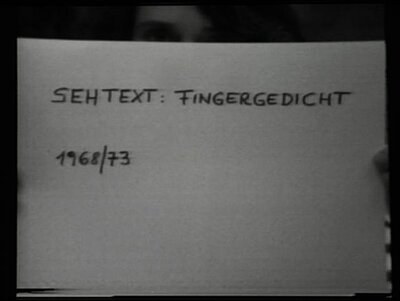 SEHTEXT: FINGERGEDICHT
1968/73